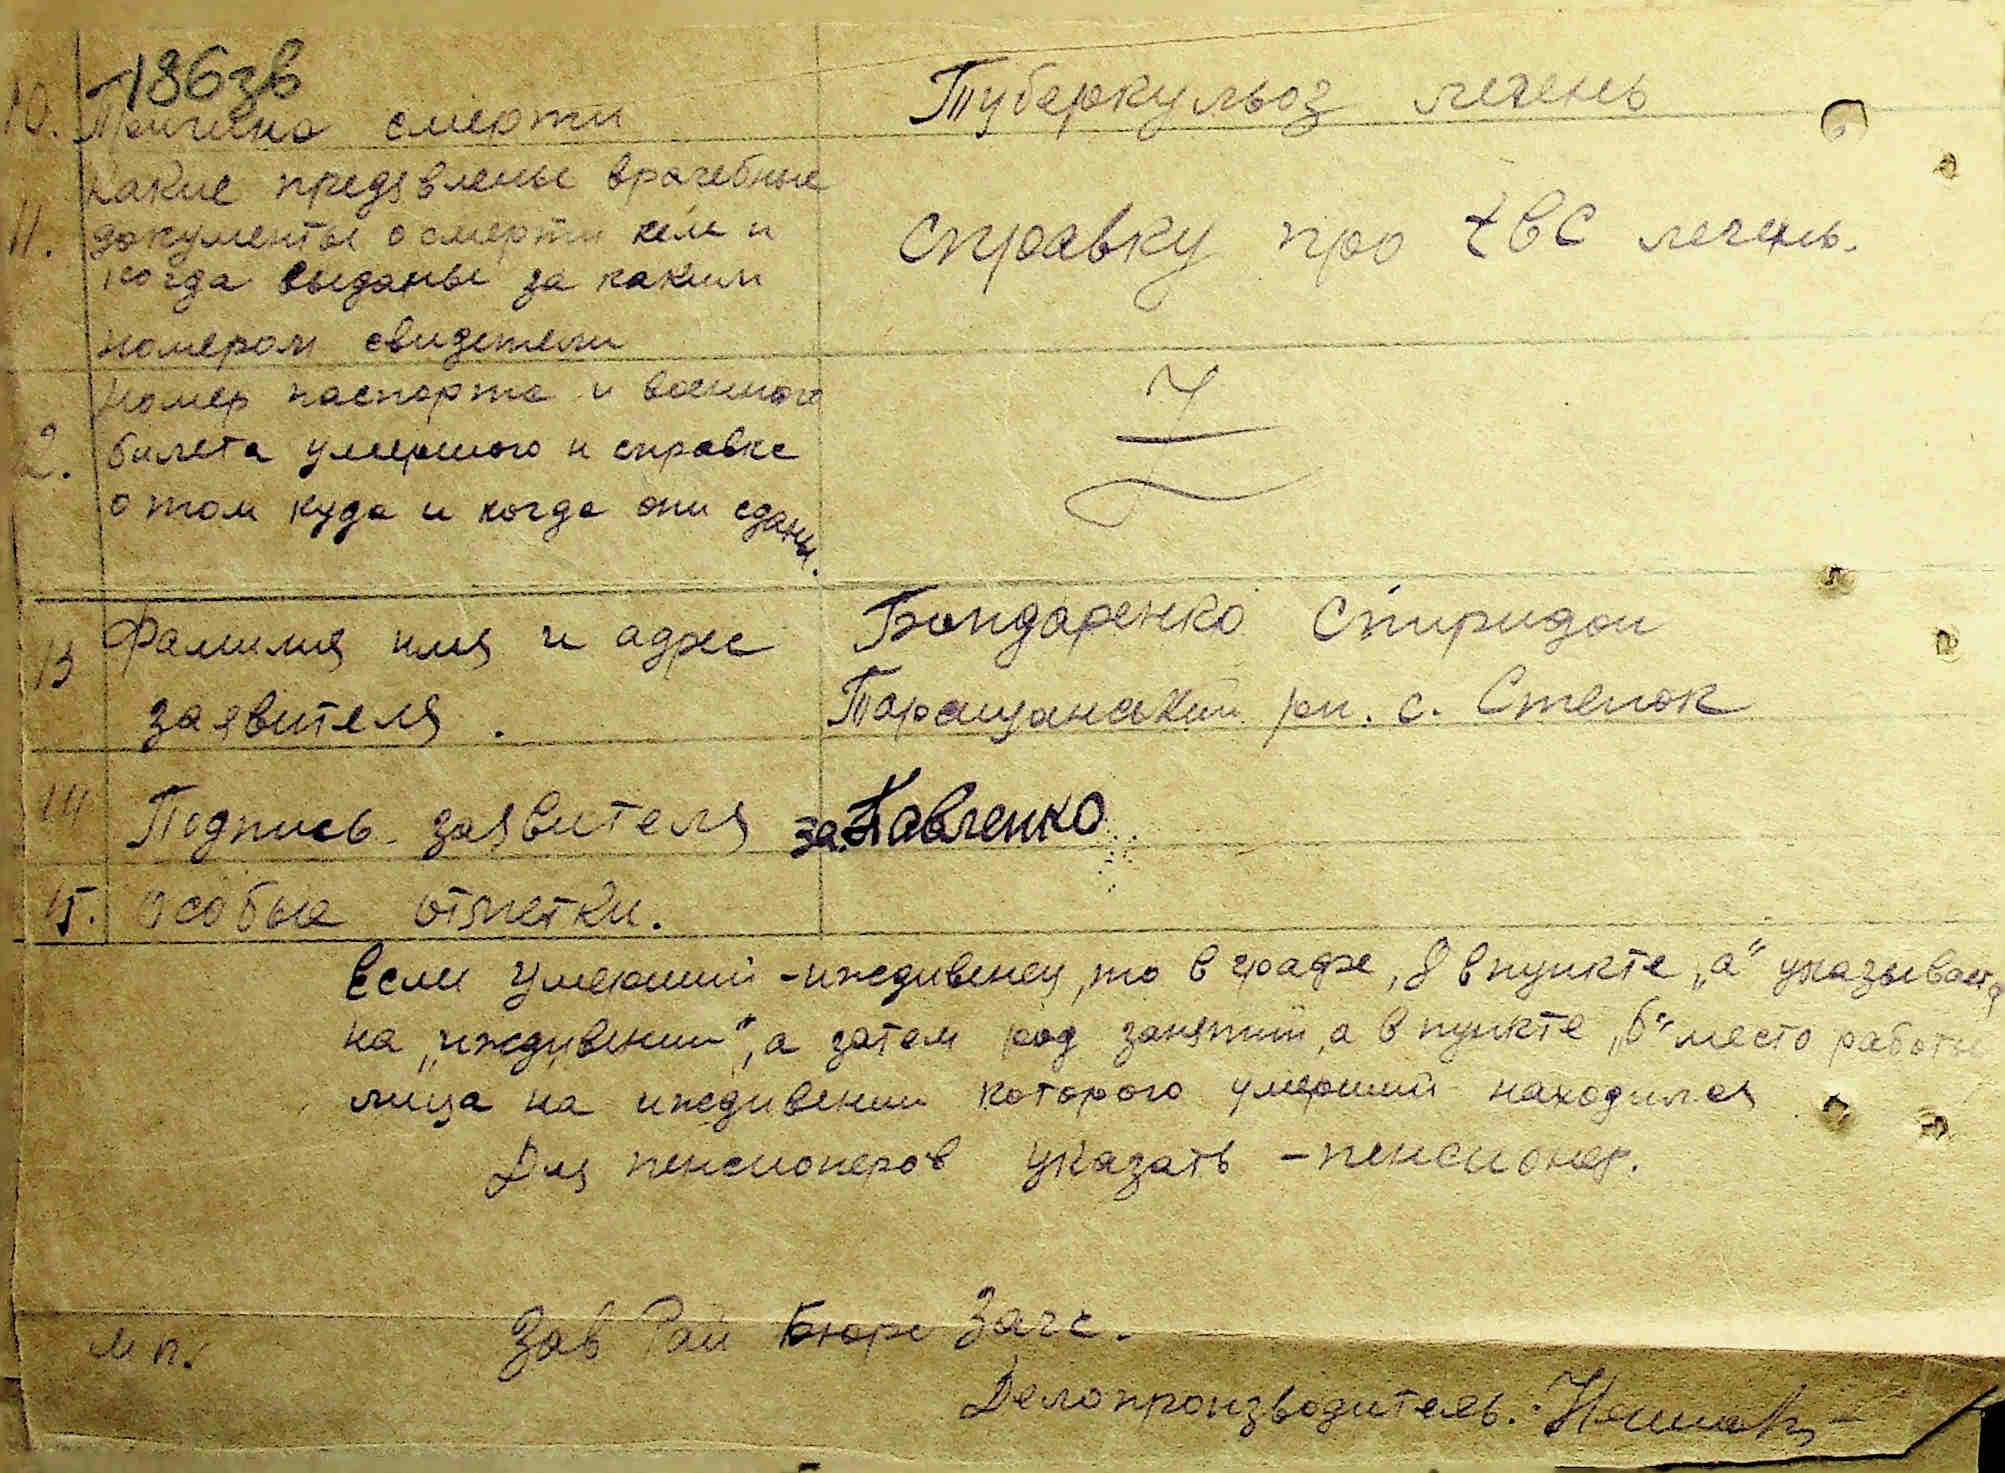 186зв
10. Причина смерти Туберкульоз легень
Какие предявлены врачебные
11. документы о смерти кем и справку про tвс легень.
когда выданы за каким
номером свидетели
Номер паспорта и военного
билета умершого и справка
о том куда и когда они сданы.
13 Фамилия имя и адрес Бондаренко Спиридон
заявителя. Таращанський рн. с. Степок
14 Подпись заявителя за Павленко
15. Особые отметки.
Если умерший - иждивенец, то в графе, 8 в пункте „а" указывается
на „иждивении", а затем род занятий, а в пункте „б" место работы
лица на иждивении которого умерший находился
Для пенсионеров указать - пенсионер.
м п. Зав Рай Бюро Загс.
Делопроизводитель.